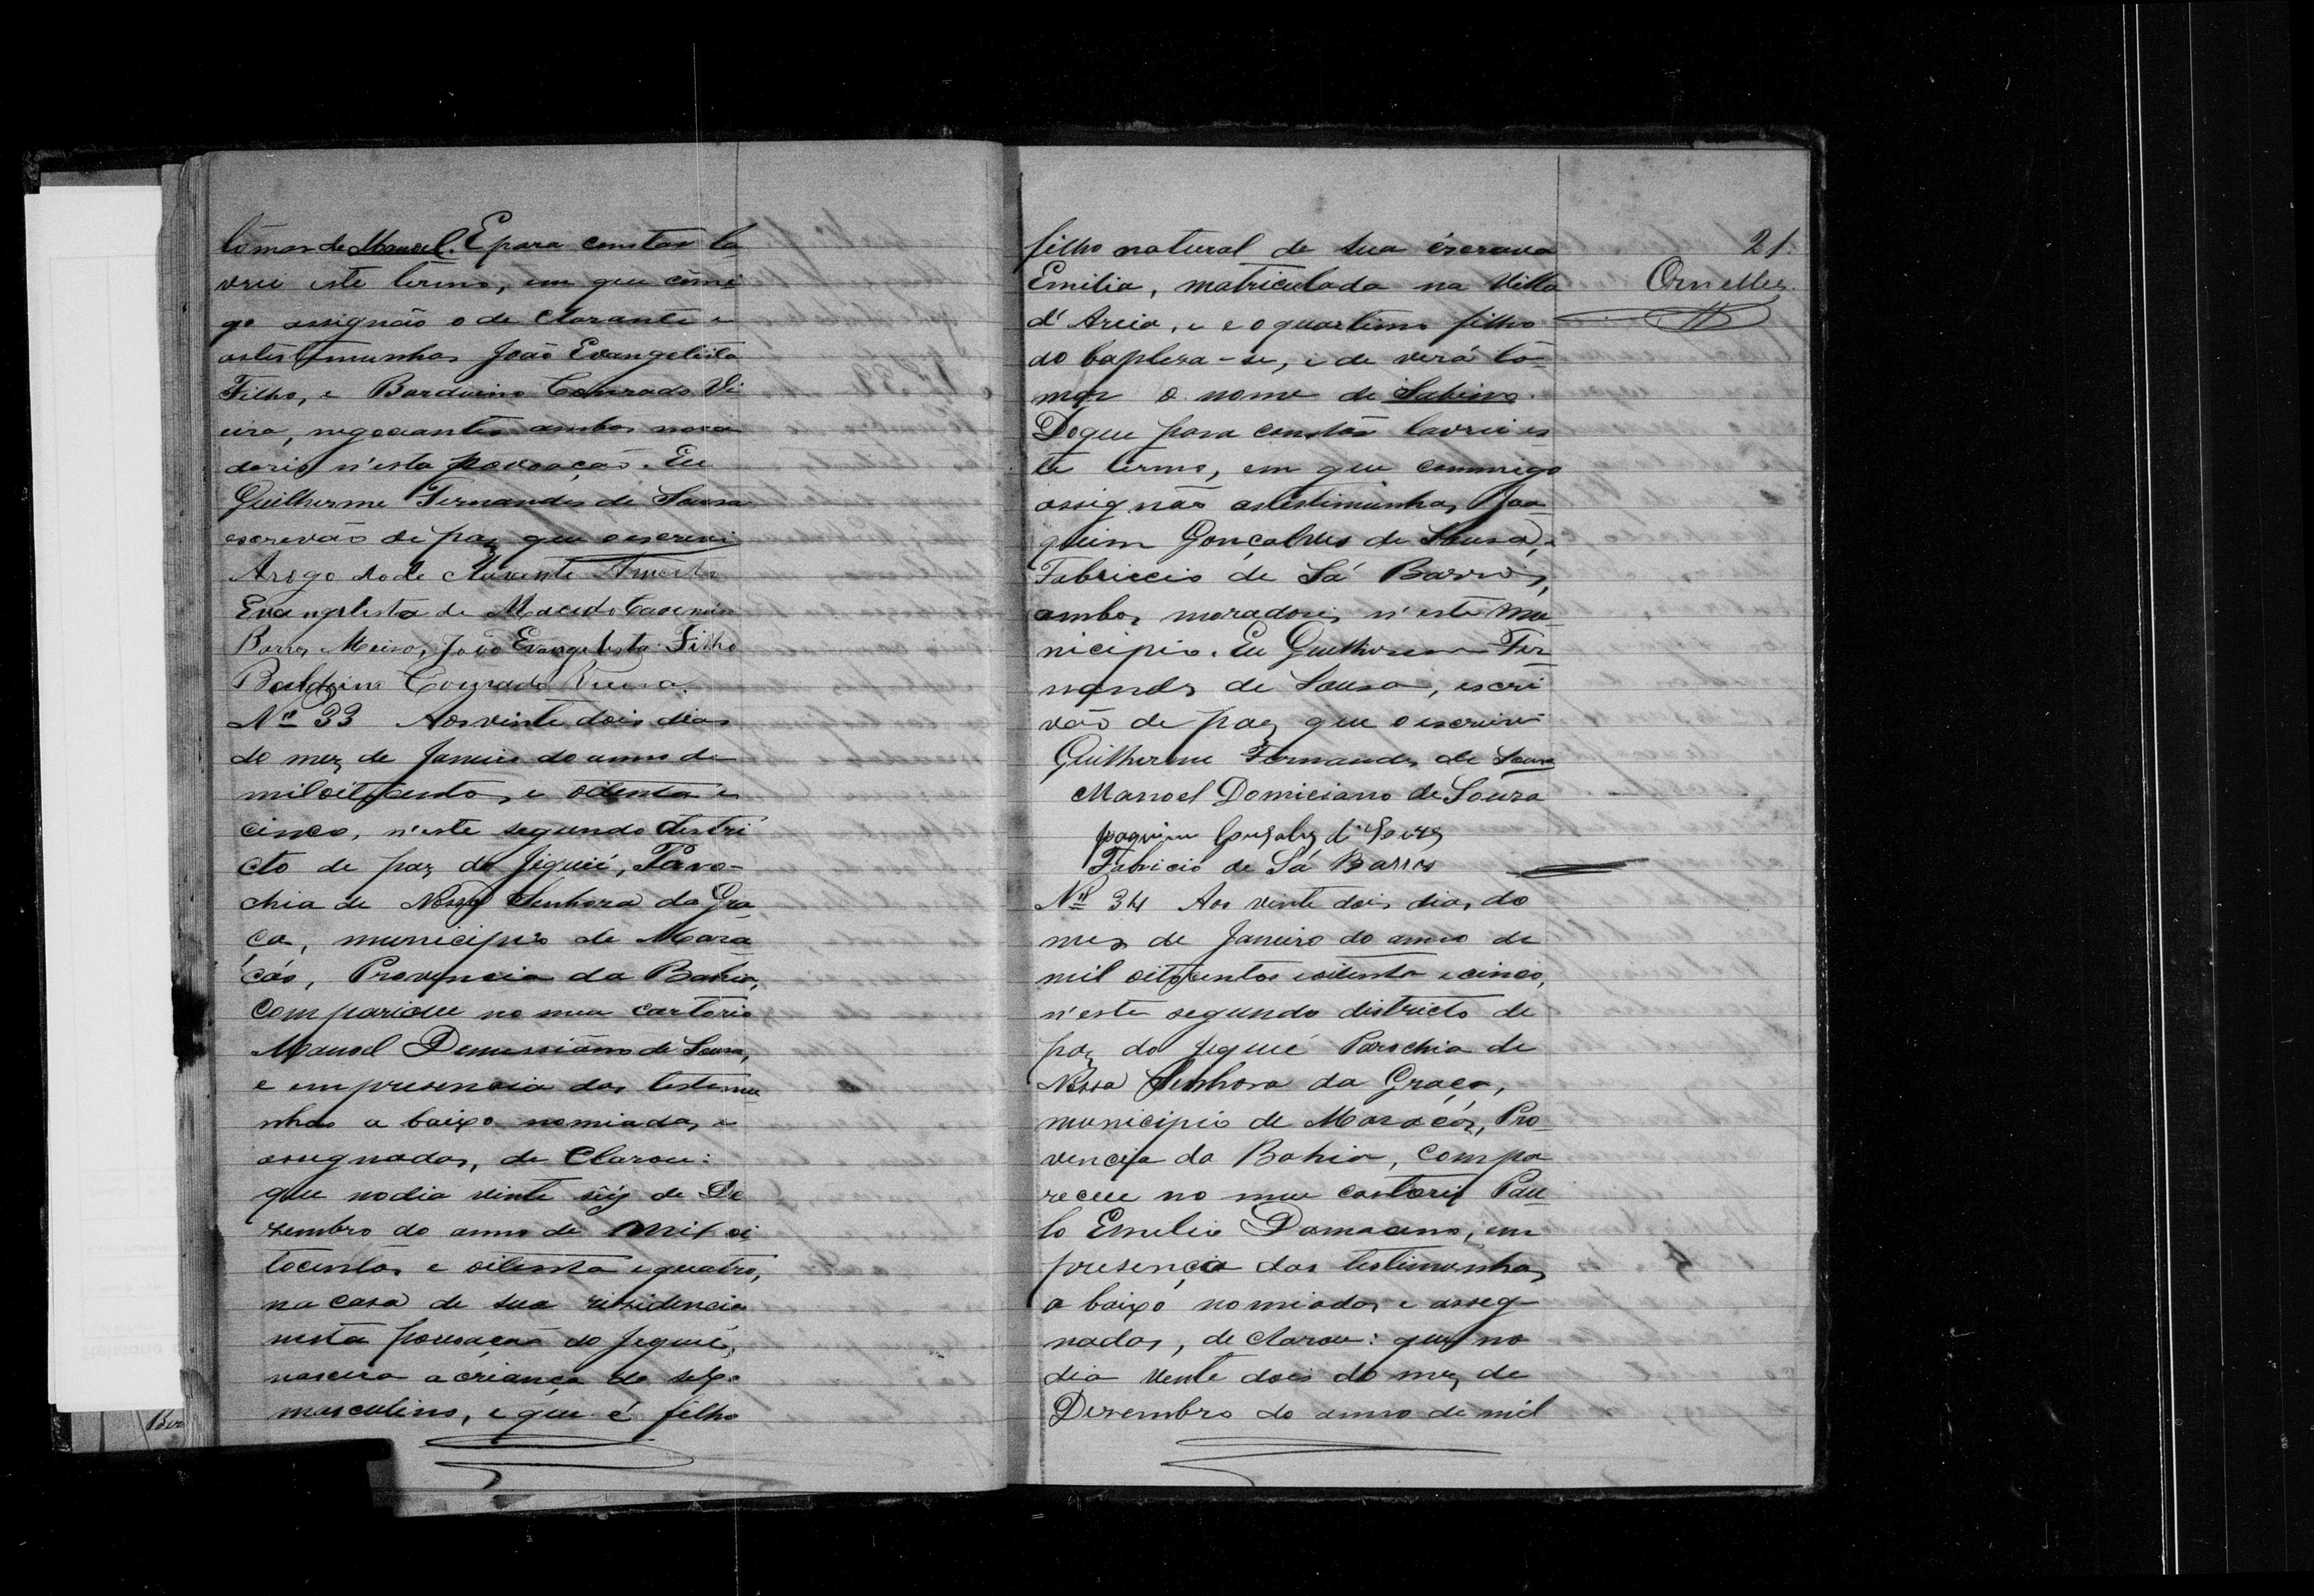 tomar de Manoel. E para constar la
vrei este termo, em que comi
go assignão o de Clarante e
as testimunhas João Evangelista
Filho, e Bardoino Conrado Vi
eira, negociantes ambos mora
doris n'esta povoação. Eu
Guilherme Fernandes de Sousa
escrevão de paz que o escrevi
Arogo do de Clarente
Evangelista de Macedo
Barros Meira, João Evangelista Filho
Baldoino Conrado Vieira.
Nº 33 Aos vinte dois dias
do mez de Janeiro do anno de
mil oitocentos e oitenta e
cinco, n'este segundo destri
cto de paz do Jiquié, Paro-
chia de Nossa Senhora da Gra
ça, municipio de Mara
cás, Provincia da Bahia,
compariceu no meu cartorio
Manoel Demissiano de Sousa,
e em presencia das testemu
nhas a baixo nomiadas e
assignadas, de Clarou:
que no dia vinte seis de De
zembro do anno de mil oi
tocentos e oitenta e quatro,
na casa de sua rizidencia
nesta povoação do Jequié,
nascera a criança do sexo
masculino, e que é filho
21.
Ornelles
filho natural de sua escrava
Emilia, matriculada na Villa
d'Areia, e e o quartimo filho
do baptesa-se, e de verá to
mar o nome de Sabino.
Do que para constar lavrei es
te termo, em que commigo
assignão as testimunhas Joa
quim Gonçalves de Sousa, e
Fabriccio de Sá Barros,
ambos moradores n'este mu
nicipio. Eu Guilherme Fer
nandes de Sousa, escri
vão de paz que o escrivi
Guilherme Fernandes de Sousa
Manoel Domiciano de Souza
Joaquim Gonsalves de Souza
Fabricio de Sá Barros
Nº 34 Aos vinte dois dias do
mes de Janeiro do anno de
mil oitocentos e oitenta e cinco,
n'este segundo districto de
paz do Jequié Parochia de
Nossa Senhora da Graça,
municipio de Maracás, Pro
vencia da Bahia, compa
receu no meu cartorio Pau
lo Emilio Damaceno, em
presença das testimunhas
a baixo nomiadas e asseg
nadas, de Clarou: que no
dia vente dois do mez de
Dezembro do anno de mil